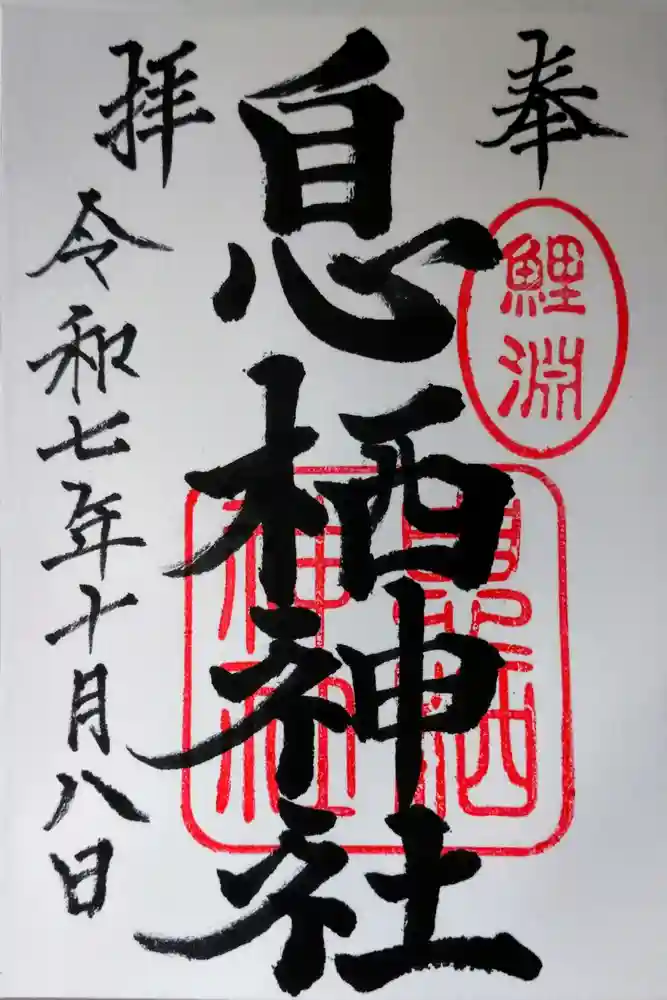 奉拝
鯉淵
息栖神社
息栖神社
令和七年十月八日